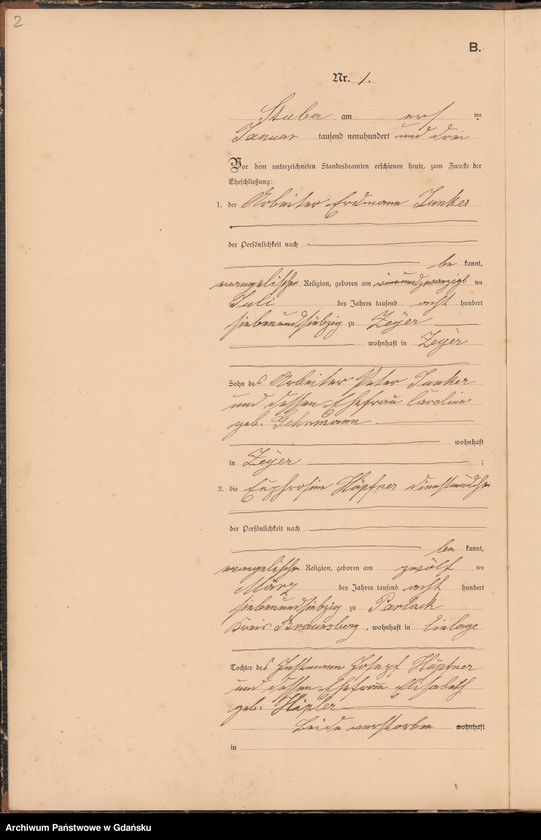 2
B.
Nr. 1.
Stuba am erst ten
Januar tausend neunhundert und drei
Vor dem unterzeichneten Standesbeamten erschienen heute, zum Zwecke der
Eheschließung:
1. der Arbeiter Erdmann Junker
der Persönlichkeit nach
be kannt,
evangelischer Religion, geboren am ten
Juli des Jahres tausend acht hundert
siebenundsiebzig zu Zeyer
wohnhaft in Zeyer
Sohn des Arbeiter Peter Junker
und dessen Ehefrau Caroline
geb.
wohnhaft
in Zeyer ;
2. die Euphrosine Höpfner Dienstmädchen
der Persönlichkeit nach
be kannt,
evangelischer Religion, geboren am zwölf ten
März des Jahres tausend acht hundert
siebenundsiebzig zu Parlack
Kreis Braunsberg, wohnhaft in Einlage
Tochter des Instmann Josepf Höpfner
und dessen Ehefrau Elisabeth
geb.
beide verstorben wohnhaft
in
Archiwum Państwowe w Gdańsku